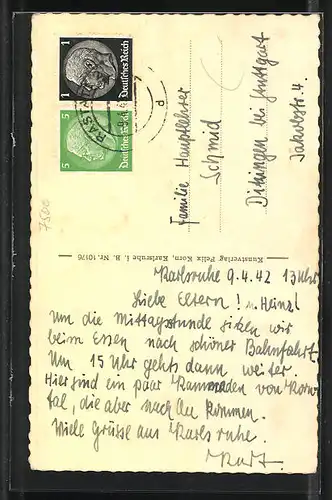 Karlsruhe 9.4.42 13 Uhr
Liebe Eltern! u. Heinz!
Um die Mittagsstunde sitzen wir
beim Essen nach schöner Bahnfahrt.
Um 15 Uhr gehts dann weiter.
Hier sind ein paar Kameraden von Kornw
tal, die aber nach kommen.
Viele Grüsse aus Karlsruhe.
Kurt.
Familie Hauptlehrer
Schmid
Ditzingen bei Stuttgart
4.
Kunstverlag Felix Korn, Karlsruhe i. B. Nr. 10176
1
Deutsches Reich
5
Deutsches Reich
RAS
d
7500